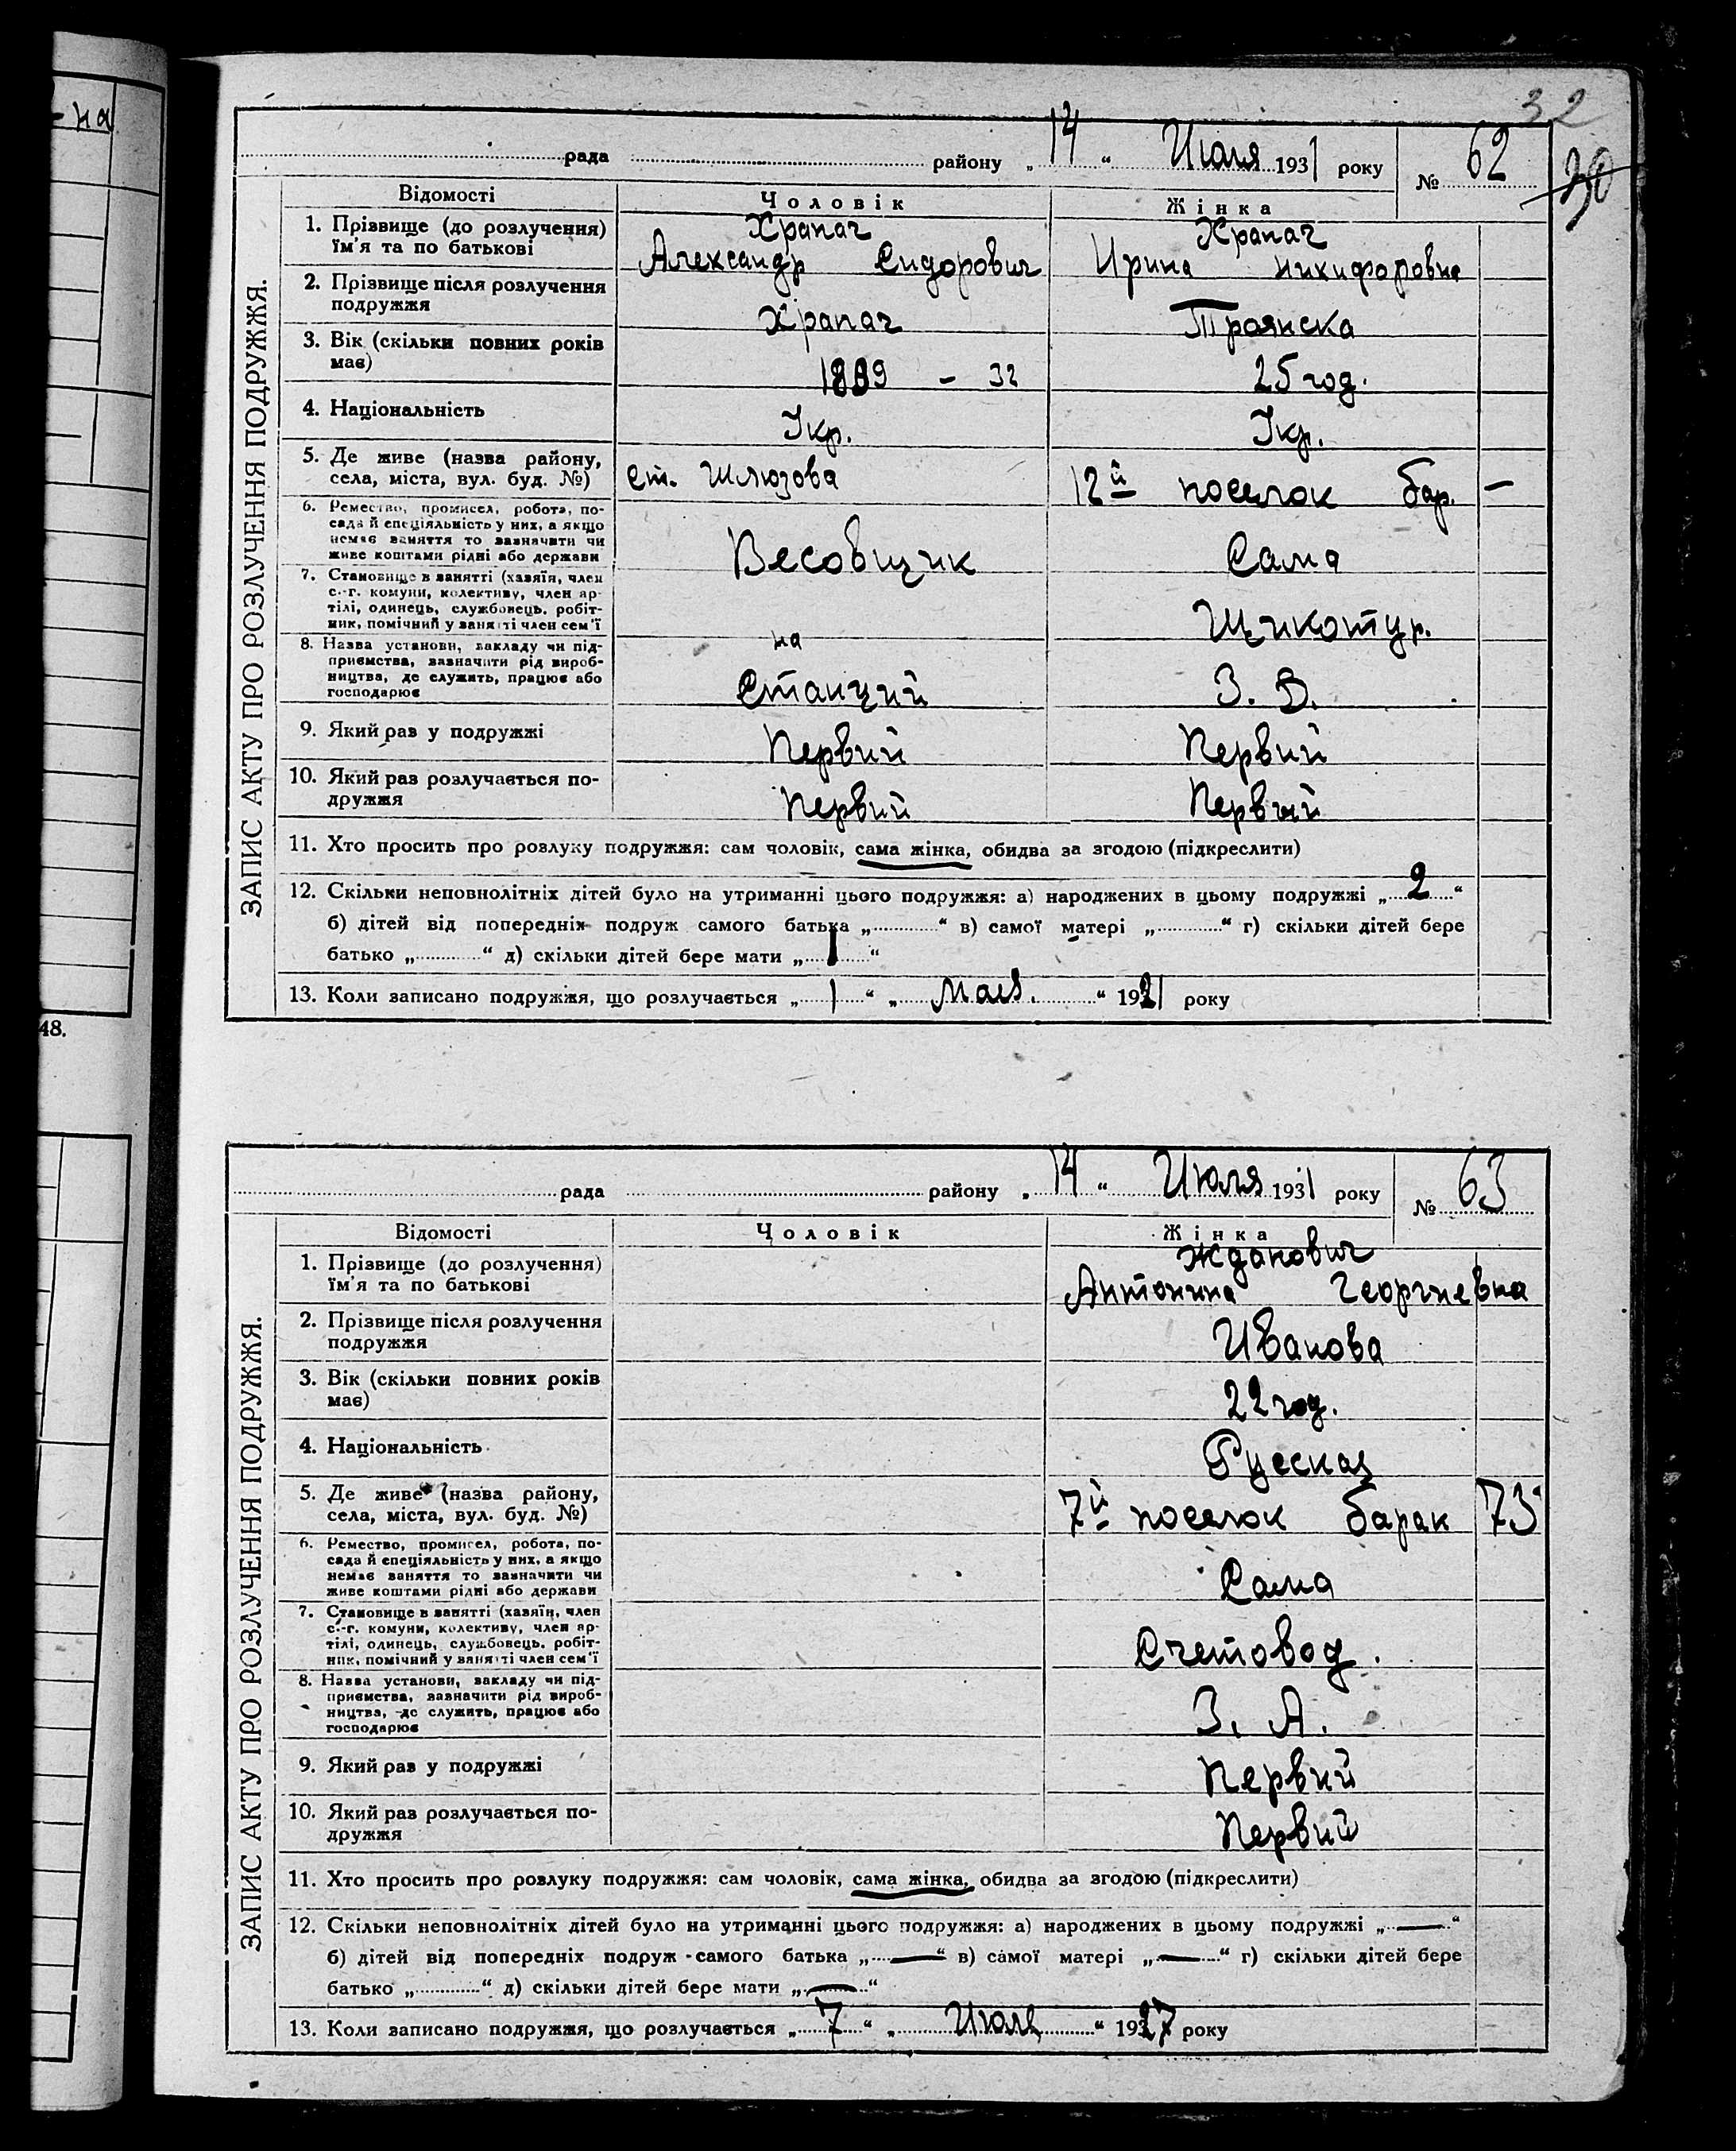 -на
48.
32
30
рада району „ 14 “ Июля 1931 року № 62
ЗАПИС АКТУ ПРО РОЗЛУЧЕННЯ ПОДРУЖЖЯ.
Відомості Чоловік Жінка
1. Прізвище (до розлучення) Храпач Храпач
ім'я та по батькові Александр Сидорович Ирина Никифоровна
2. Прізвище після розлучення
подружжя Храпач Троянска
3. Вік (скільки повних років
має) 1889 - 32 25 год.
4. Національність Укр. Укр.
5. Де живе (назва району,
села, міста, вул. буд. №) ст. Шлюзова 12й поселок бар. —
6. Ремество, промисел, робота, по-
сада й спеціяльність у них, а якщо
немає заняття то зазначити чи
живе коштами рідні або держави Весовщик Сама
7. Становище в занятті (хазяїн, член
с.-г. комуни, колективу, член ар-
тілі, одинець, службовець, робіт-
ник, помічний у занятті член сем'ї Щикотур.
8. Назва установи, закладу чи під- на
приємства, зазначити рід вироб-
ництва, де служить, працює або
господарює Станций З. В.
9. Який раз у подружжі Первий Первий
10. Який раз розлучається по-
дружжя Первий Первый
11. Хто просить про розлуку подружжя: сам чоловік, сама жінка, обидва за згодою (підкреслити)
12. Скільки неповнолітніх дітей було на утриманні цього подружжя: а) народжених в цьому подружжі „ 2 “
б) дітей від попередніх подруж самого батька „ “ в) самої матері „ “ г) скільки дітей бере
батько „ “ д) скільки дітей бере мати „ 1 “
13. Коли записано подружжя, що розлучається „ 1 “ „ Мая “ 1921 року
рада району „ 14 “ Июля 1931 року № 63
ЗАПИС АКТУ ПРО РОЗЛУЧЕННЯ ПОДРУЖЖЯ.
Відомості Чоловік Жінка
1. Прізвище (до розлучення) Жданович
ім'я та по батькові Антонина Георгиевна
2. Прізвище після розлучення
подружжя Иванова
3. Вік (скільки повних років
має) 22 год.
4. Національність Русская
5. Де живе (назва району,
села, міста, вул. буд. №) 7й поселок барак 73
6. Ремество, промисел, робота, по-
сада й спеціяльність у них, а якщо
немає заняття то зазначити чи
живе коштами рідні або держави Сама
7. Становище в занятті (хазяїн, член
с.-г. комуни, колективу, член ар-
тілі, одинець, службовець, робіт-
ник, помічний у занятті член сем'ї Счетовод.
8. Назва установи, закладу чи під-
приємства, зазначити рід вироб-
ництва, де служить, працює або
господарює З. А.
9. Який раз у подружжі Первий
10. Який раз розлучається по-
дружжя Первий
11. Хто просить про розлуку подружжя: сам чоловік, сама жінка, обидва за згодою (підкреслити)
12. Скільки неповнолітніх дітей було на утриманні цього подружжя: а) народжених в цьому подружжі „ — “
б) дітей від попередніх подруж самого батька „ — “ в) самої матері „ — “ г) скільки дітей бере
батько „ “ д) скільки дітей бере мати „ — “
13. Коли записано подружжя, що розлучається „ 7 “ „ Июля “ 1927 року